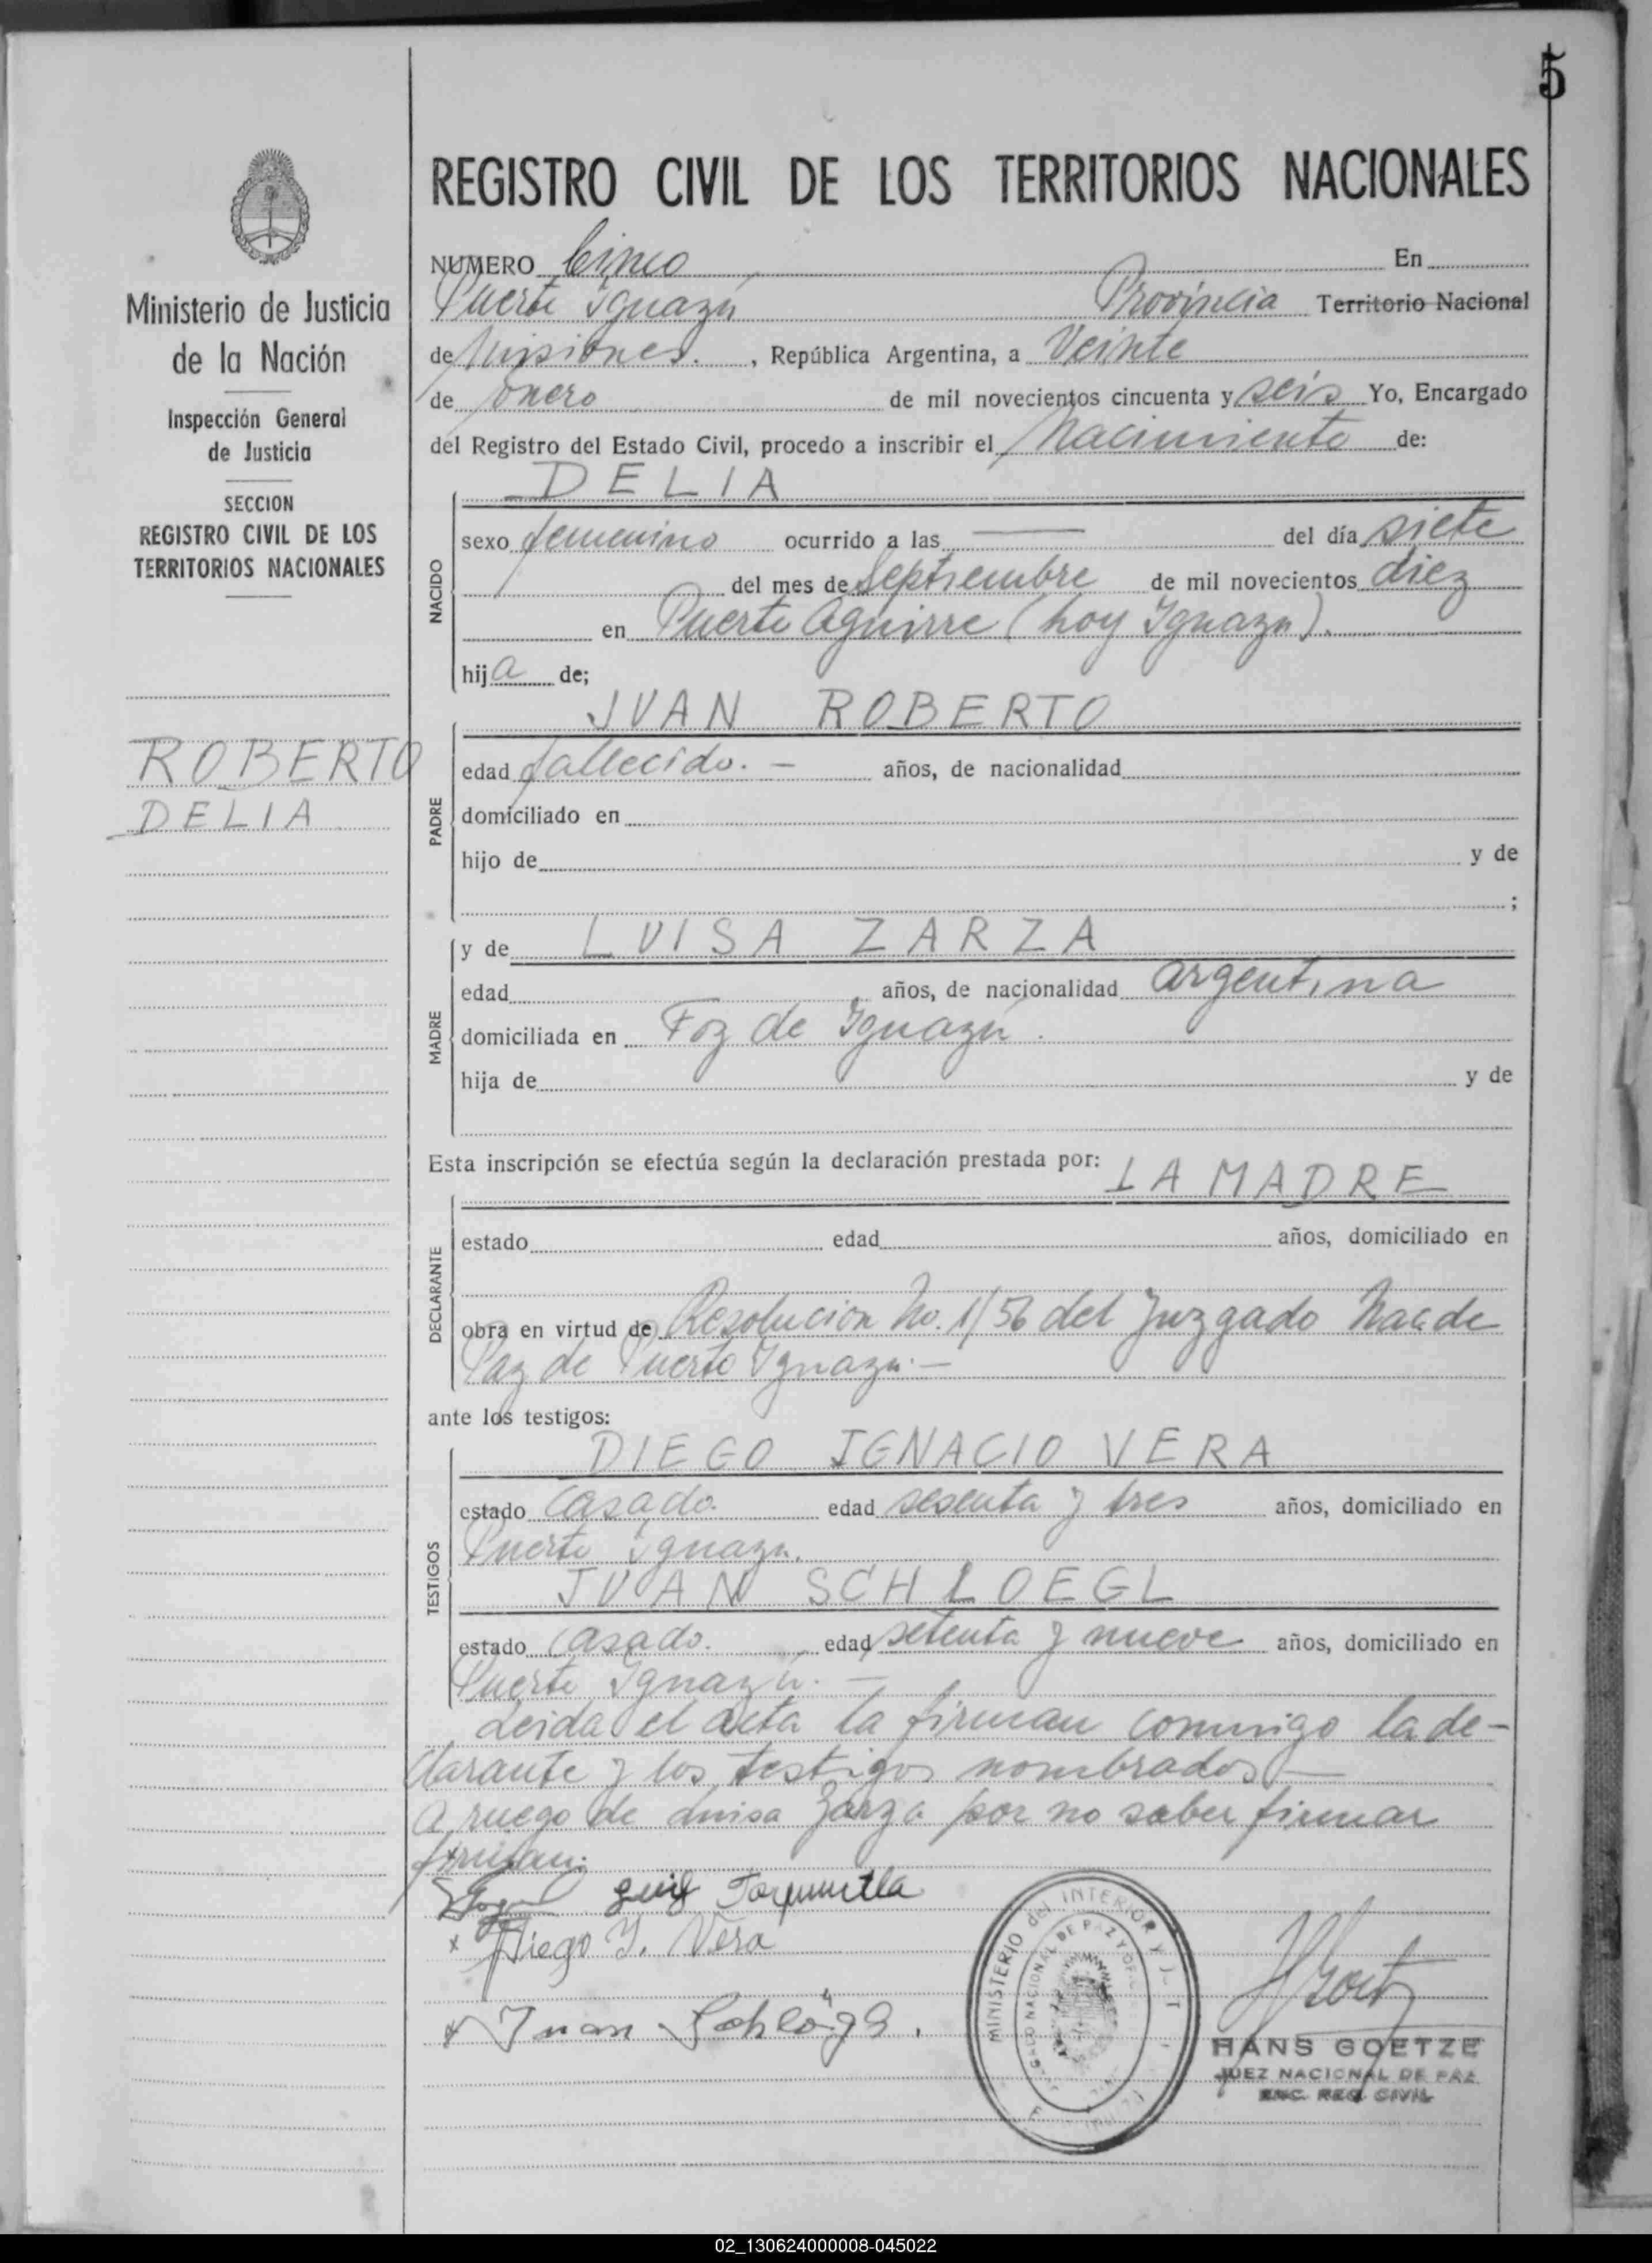 5
REGISTRO CIVIL DE LOS TERRITORIOS NACIONALES
Ministerio de Justicia
de la Nación
Inspección General
de Justicia
SECCION
REGISTRO CIVIL DE LOS
TERRITORIOS NACIONALES
ROBERTO
DELIA
NUMERO Cinco En
Puerto Iguazú Provincia Territorio Nacional
de Misiones. , República Argentina, a Veinte
de Enero de mil novecientos cincuenta y seis Yo, Encargado
del Registro del Estado Civil, procedo a inscribir el Nacimiento de:
DELIA
NACIDO
sexo femenino ocurrido a las — del día siete
del mes de Septiembre de mil novecientos diez
en Puerto Aguirre (hoy Iguazu).
hija de;
JUAN ROBERTO
PADRE
edad fallecido. – años, de nacionalidad
domiciliado en
hijo de y de
;
y de LUISA ZARZA
MADRE
edad años, de nacionalidad argentina
domiciliada en Foz de Iguazú.
hija de y de
Esta inscripción se efectúa según la declaración prestada por:
LA MADRE
DECLARANTE
estado edad años, domiciliado en
obra en virtud de Resolucion No. 1/56 del Juzgado Nac de
Paz de Puerto Iguazu.–
ante los testigos:
DIEGO IGNACIO VERA
TESTIGOS
estado Casado. edad sesenta y tres años, domiciliado en
Puerto Iguazu.
JUAN SCHLOEGL
estado Casado. edad setenta y nueve años, domiciliado en
Puerto Iguazú. –
Leida el acta la firman conmigo la de-
clarante y los testigos nombrados –
A ruego de Luisa Zarza por no saber firmar
firman:
x Diego I. Vera
x Juan Schlögl.
MINISTERIO del INTERIOR Y J
NACIONAL DE PAZ Y OF
HANS GOETZE
JUEZ NACIONAL DE PAZ
ENC. REG. CIVIL
02_130624000008-045022